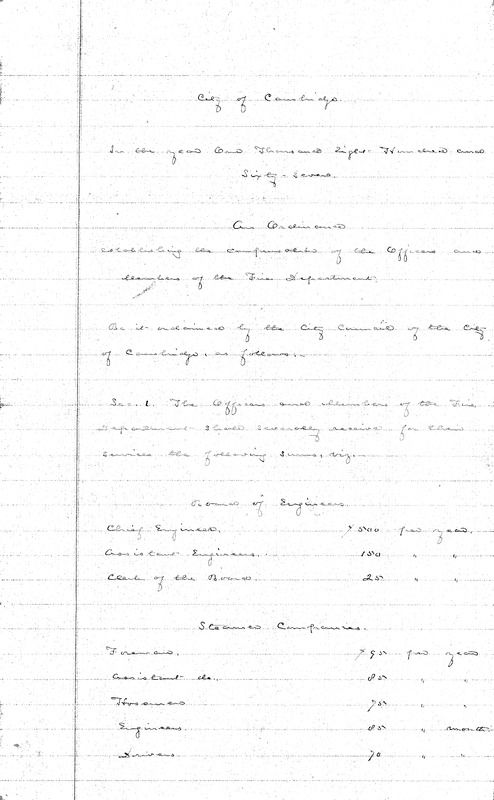 City of Cambridge.
In the year One Thousand Eight Hundred and
Sixty-seven.
An Ordinance
establishing the compensation of the Officers and
Members of the Fire Department.
Be it ordained by the City Council of the City
of Cambridge, as follows:-
Sec. 1. The Officers and Members of the Fire
Department shall severally receive for their
services the following sums, viz:-
Board of Engineers.
Chief Engineer. $500 per year.
Assistant Engineers. 150 " "
Clerk of the Board. 25 " "
Steamer Companies.
Foreman. $95 per year
Assistant do. 85 " "
Hosemen 75 " "
Engineers. 85 " month
Drivers 70 " "